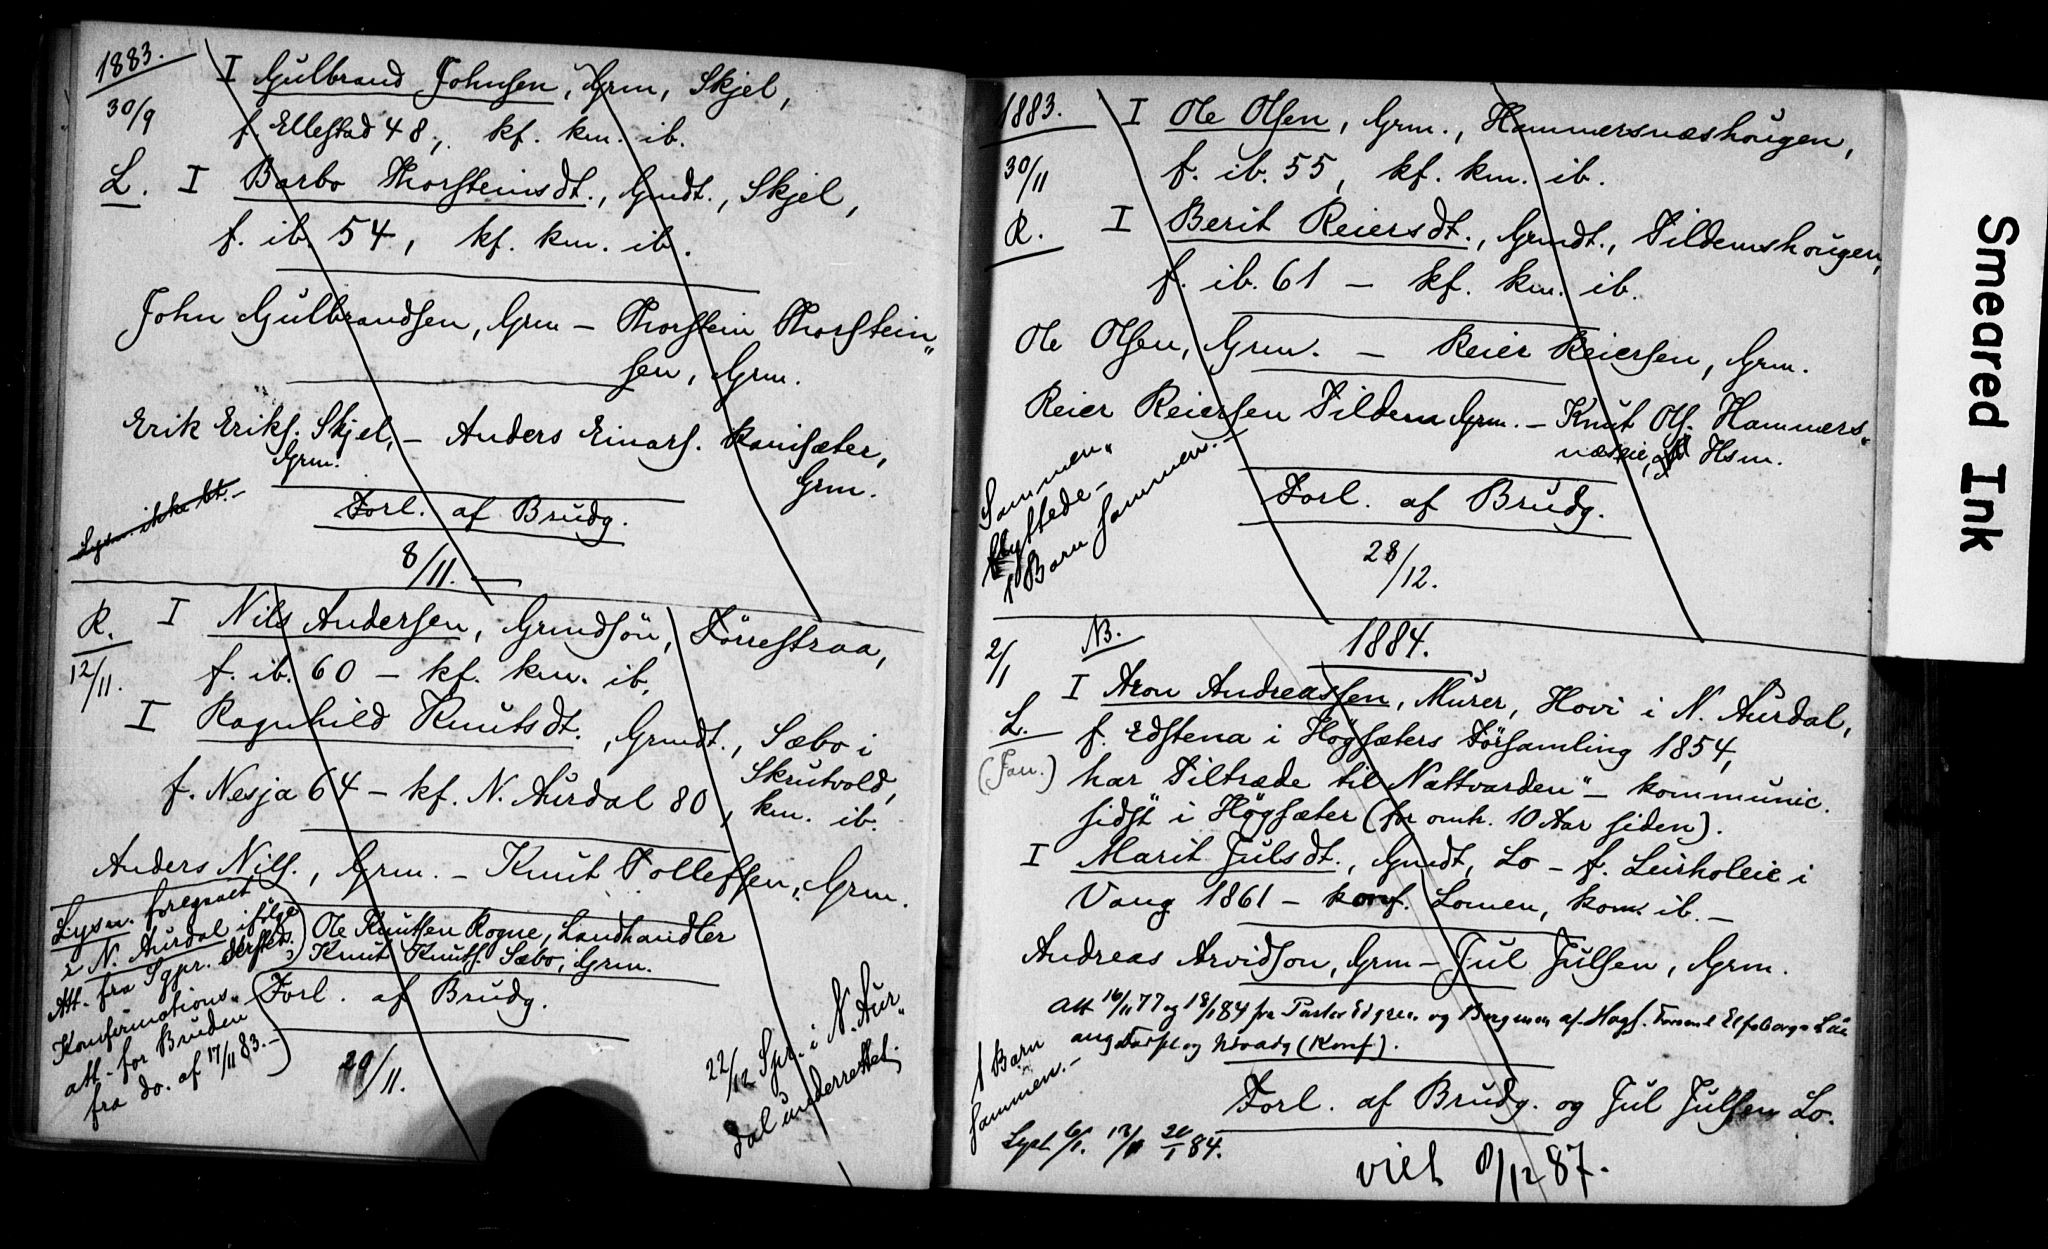 1883.
30/9
L.
I Gulbrand Johnsen, Grm, Skjel,
f. Ellestad 48,. kf. km. ib.
I Barbo Thorsteinsdt., Gmdt., Skjel,
f. ib. 54, kf. km. ib.
John Gulbrandsen, Grm – Thorstein Thorstein„
sen, Grm.
Erik Eriks. Skjel, – Anders Einars. Ranisæter,
Grm.
Grm.
Lysn. ikke bt. –
Forl. af Brudg.
8/11. —
R.
12/11.
I Nils Andersen, Grmdsön, Förrestraa,
f. ib. 60 – kf. km. ib.
I Ragnhild Knutsdt., Grmdt., Sæbo i
Skrutvold,
f. Nesja 64 – kf. N. Aurdal 80, km. ib.
Anders Nils., Grm. – Knut Tollefsen, Grm.
Lysn. foregaaet
i N. Aurdal ifölge
Att. fra Sgpr. dersteds.
Konfirmations„
att. for Bruden
fra do. af 17/11 83. –
Ole Knutsen Rogne, Landhandler
Knut Knuts. Sæbo, Grm.
Forl. af Brudg.
20/11.
22/12 Spr. i N. Aur„
dal underrettet.
1883.
30/11
R.
I Ole Olsen, Grm., Hammersnæshougen,
f. ib. 55, kf. km. ib.
I Berit Reiersdt., Grmdt., Tildemshougen,
f. ib. 61 – kf. km. ib.
Ole Olsen, Grm. – Reier Reiersen, Grm.
Reier Reiersen Tildem Grm. – Knut Ols. Hammers„
næseie, Hsm.
Sammen„
flyttede –
1 Barn sammen. –
Forl. af Brudg.
28/12.
2/1
NB.
1884.
L.
(Fan.)
I Aron Andreassen, Murer, Hovi i N. Aurdal,
f. Edstena i Högsæters Församling 1854,
har Tiltræde til Nattvarden" – kommunic.
sidst i Högsæter (for omtr. 10 Aar siden).
I Marit Julsdt., Gmdt, Lo – f. Leirholeie i
Vang 1861 – konf. Lomen, kom. ib. –
Andreas Arvidson, Grm – Jul Julsen, Grm.
Att 16/11 77 og 18/1 84 fra Pastor Edgren og Bergman af Högs.
1 Barn
sammen. –
Forl. af Brudg. og Jul Julsen Lo.
Lyst 6/1. 13/1 20/1 84.
viet 8/12 87.
Smeared Ink